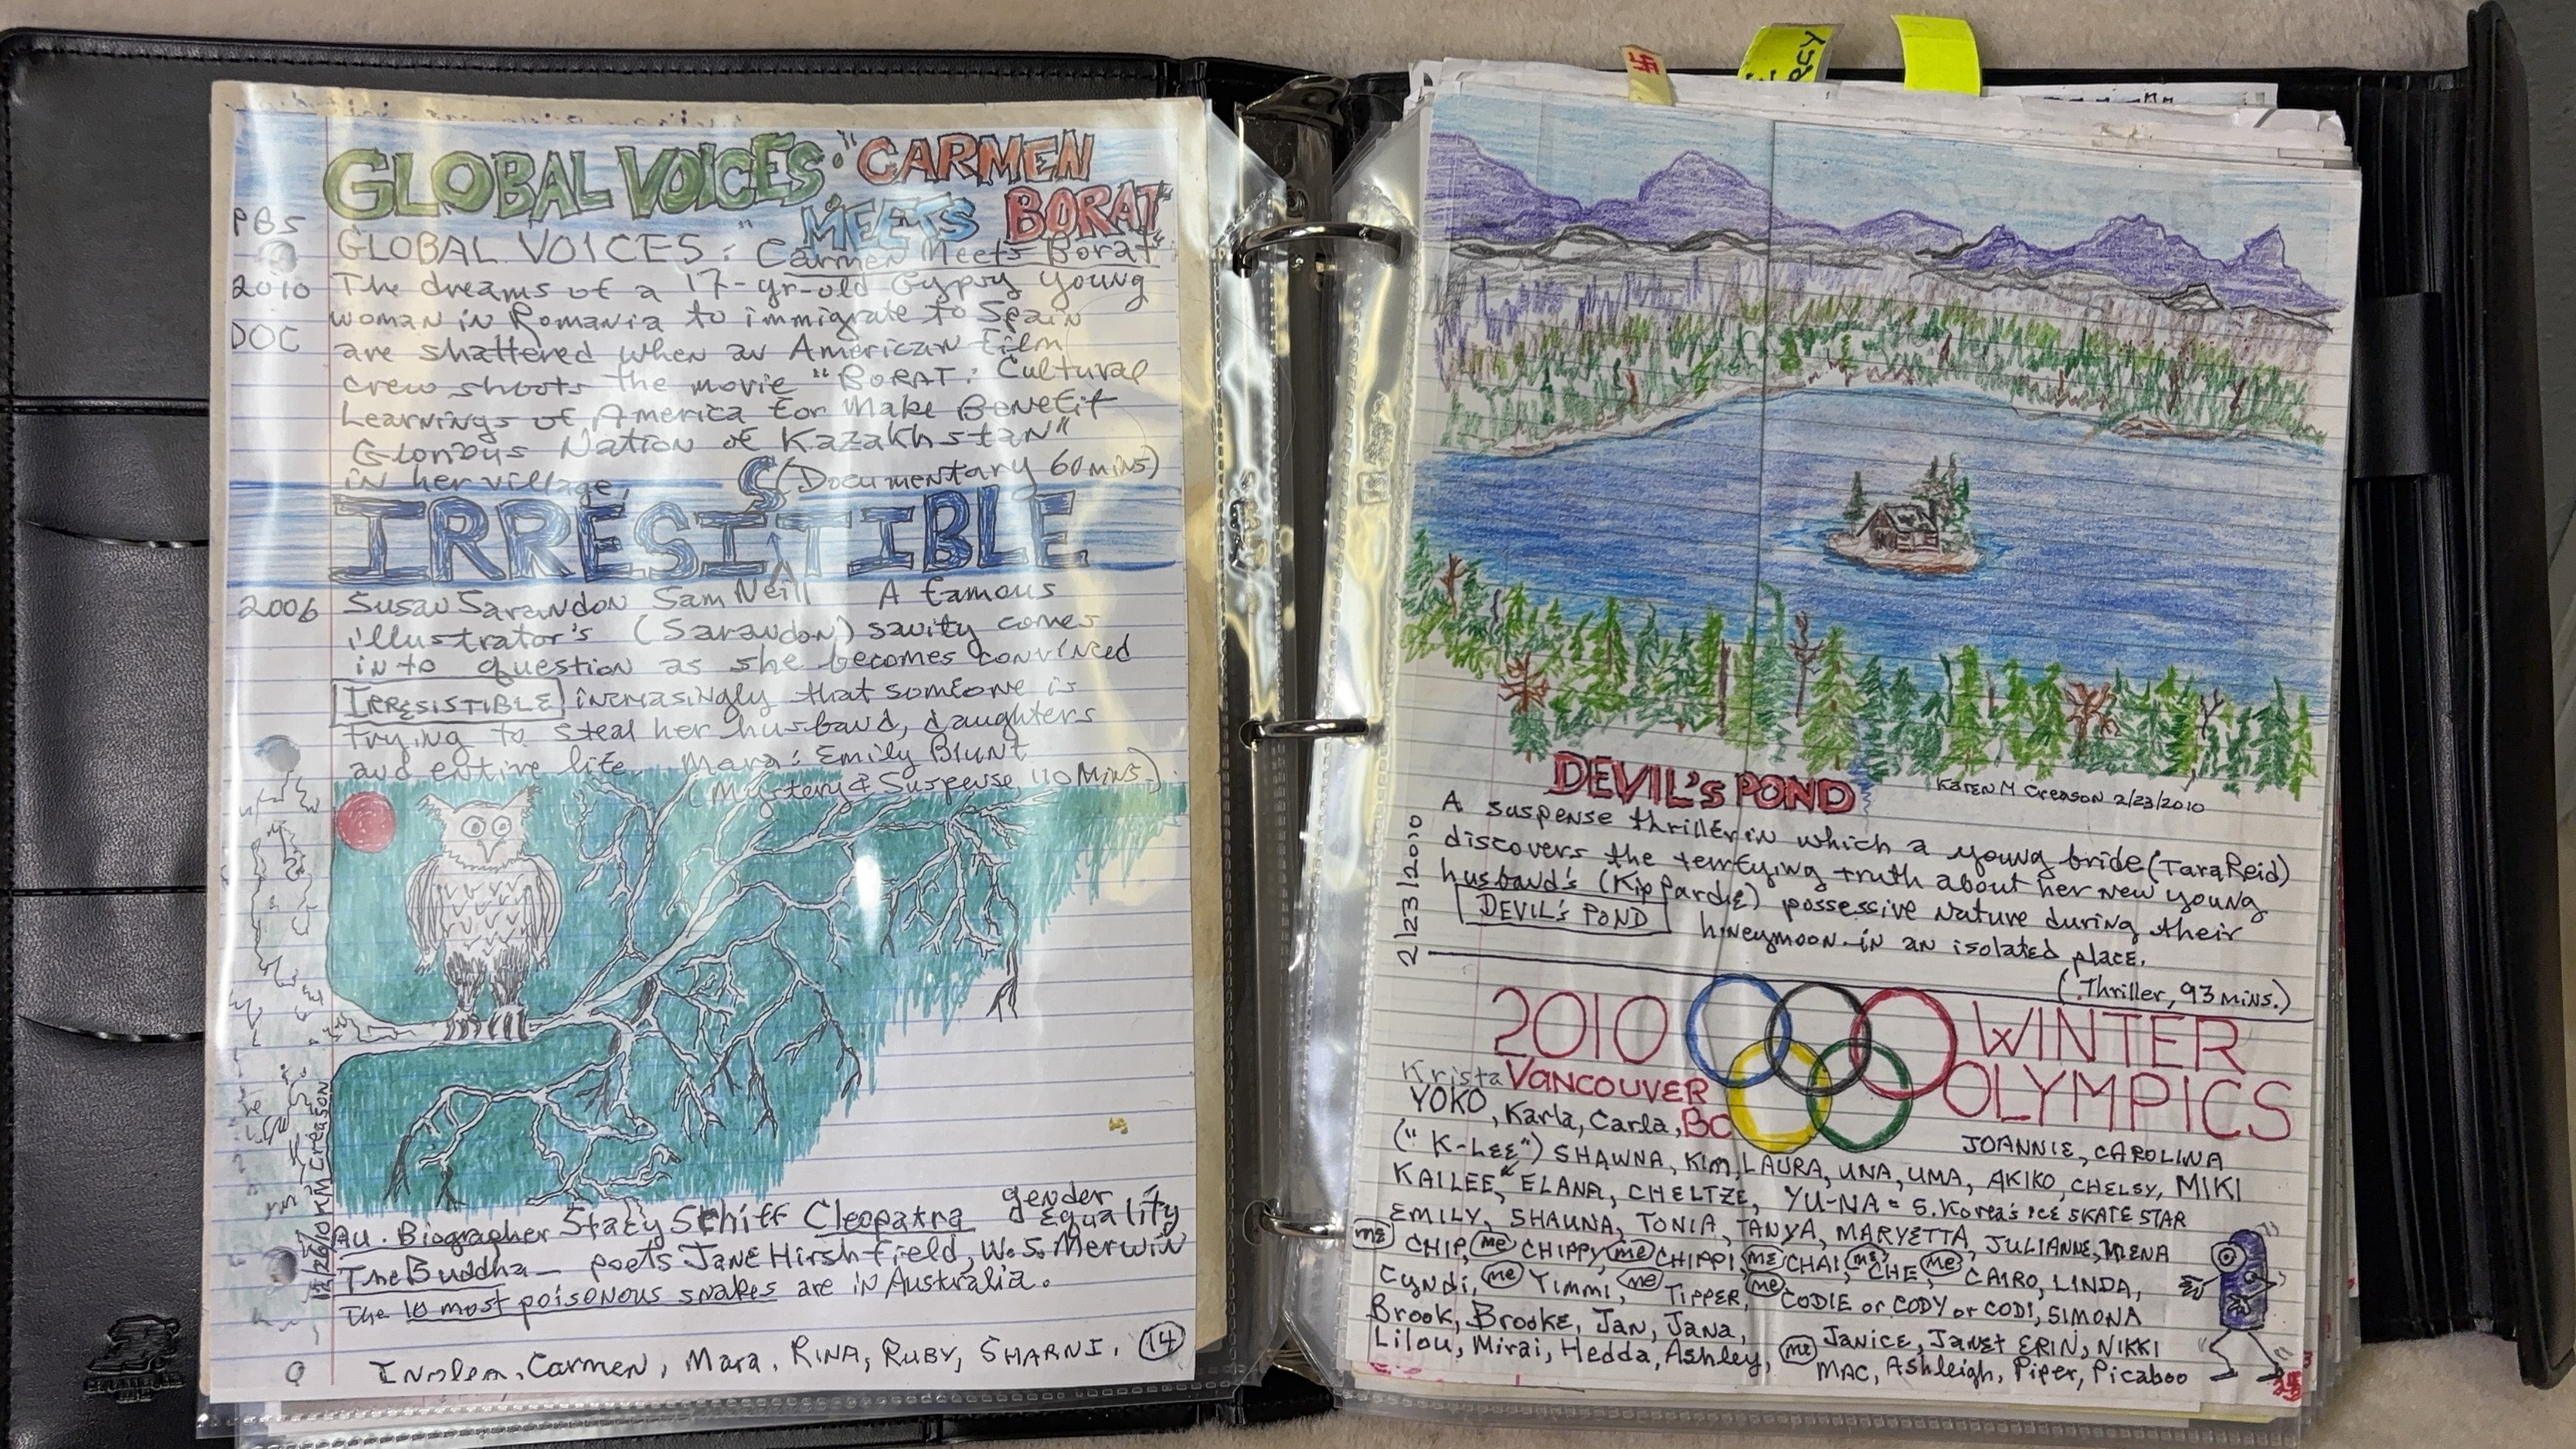 GLOBAL VOICES: "CARMEN
MEETS BORAT"
PBS
GLOBAL VOICES: "Carmen Meets Borat"
2010 The dreams of a 17-yr-old Gypsy young
woman in Romania to immigrate to Spain
DOC are shattered when an American film
crew shoots the movie "BORAT: Cultural
Learnings of America for Make Benefit
Glorious Nation of Kazakhstan"
in her village. (Documentary 60 mins)
S
IRRESITIBLE
2006 Susan Sarandon Sam Neill A famous
illustrator's (Sarandon) sanity comes
into question as she becomes convinced
IRRESISTIBLE increasingly that someone is
trying to steal her husband, daughters
and entire life. Mara: Emily Blunt
(Mystery & Suspense, 110 Mins.)
12/26/10 KM Creason
Au. Biographer Stacy Schiff Cleopatra gender equality
The Buddha - poets Jane Hirshfield, W.S. Merwin
The 10 most poisonous snakes are in Australia.
Carmen, Mara, RINA, RUBY, SHARNI. 14
RCY
DEVIL'S POND
Karen M Creason 2/23/2010
2/23/2010
A suspense thriller in which a young bride (Tara Reid)
discovers the terrfying truth about her new young
husband's (Kip Pardie) possessive nature during their
DEVIL'S POND honeymoon in an isolated place.
(Thriller, 93 mins.)
2010 WINTER
Krista VANCOUVER OLYMPICS
YOKO, Karla, Carla, BC
JOANNIE, CAROLINA
("K-LEE") SHAWNA, Kim, LAURA, UNA, UMA, AKIKO, CHELSY, MIKI
KAILEE, ELANA, CHELTZE, YU-NA = S. Korea's ICE SKATE STAR
EMILY, SHAUNA, TONIA, TANYA, MARYETTA, JULIANNE, MIENA
me CHIP, me CHIPPY, me CHIPPI, me CHAI, me CHE, me CAIRO, LINDA,
Cyndi, me Yimmi, me TIPPER, me CODIE or CODY or CODI, SIMONA
Brook, Brooke, Jan, Jana, Janice, Janet ERIN, NIKKI
Lilou, Mirai, Hedda, Ashley, me MAC, Ashleigh, Piper, Picaboo